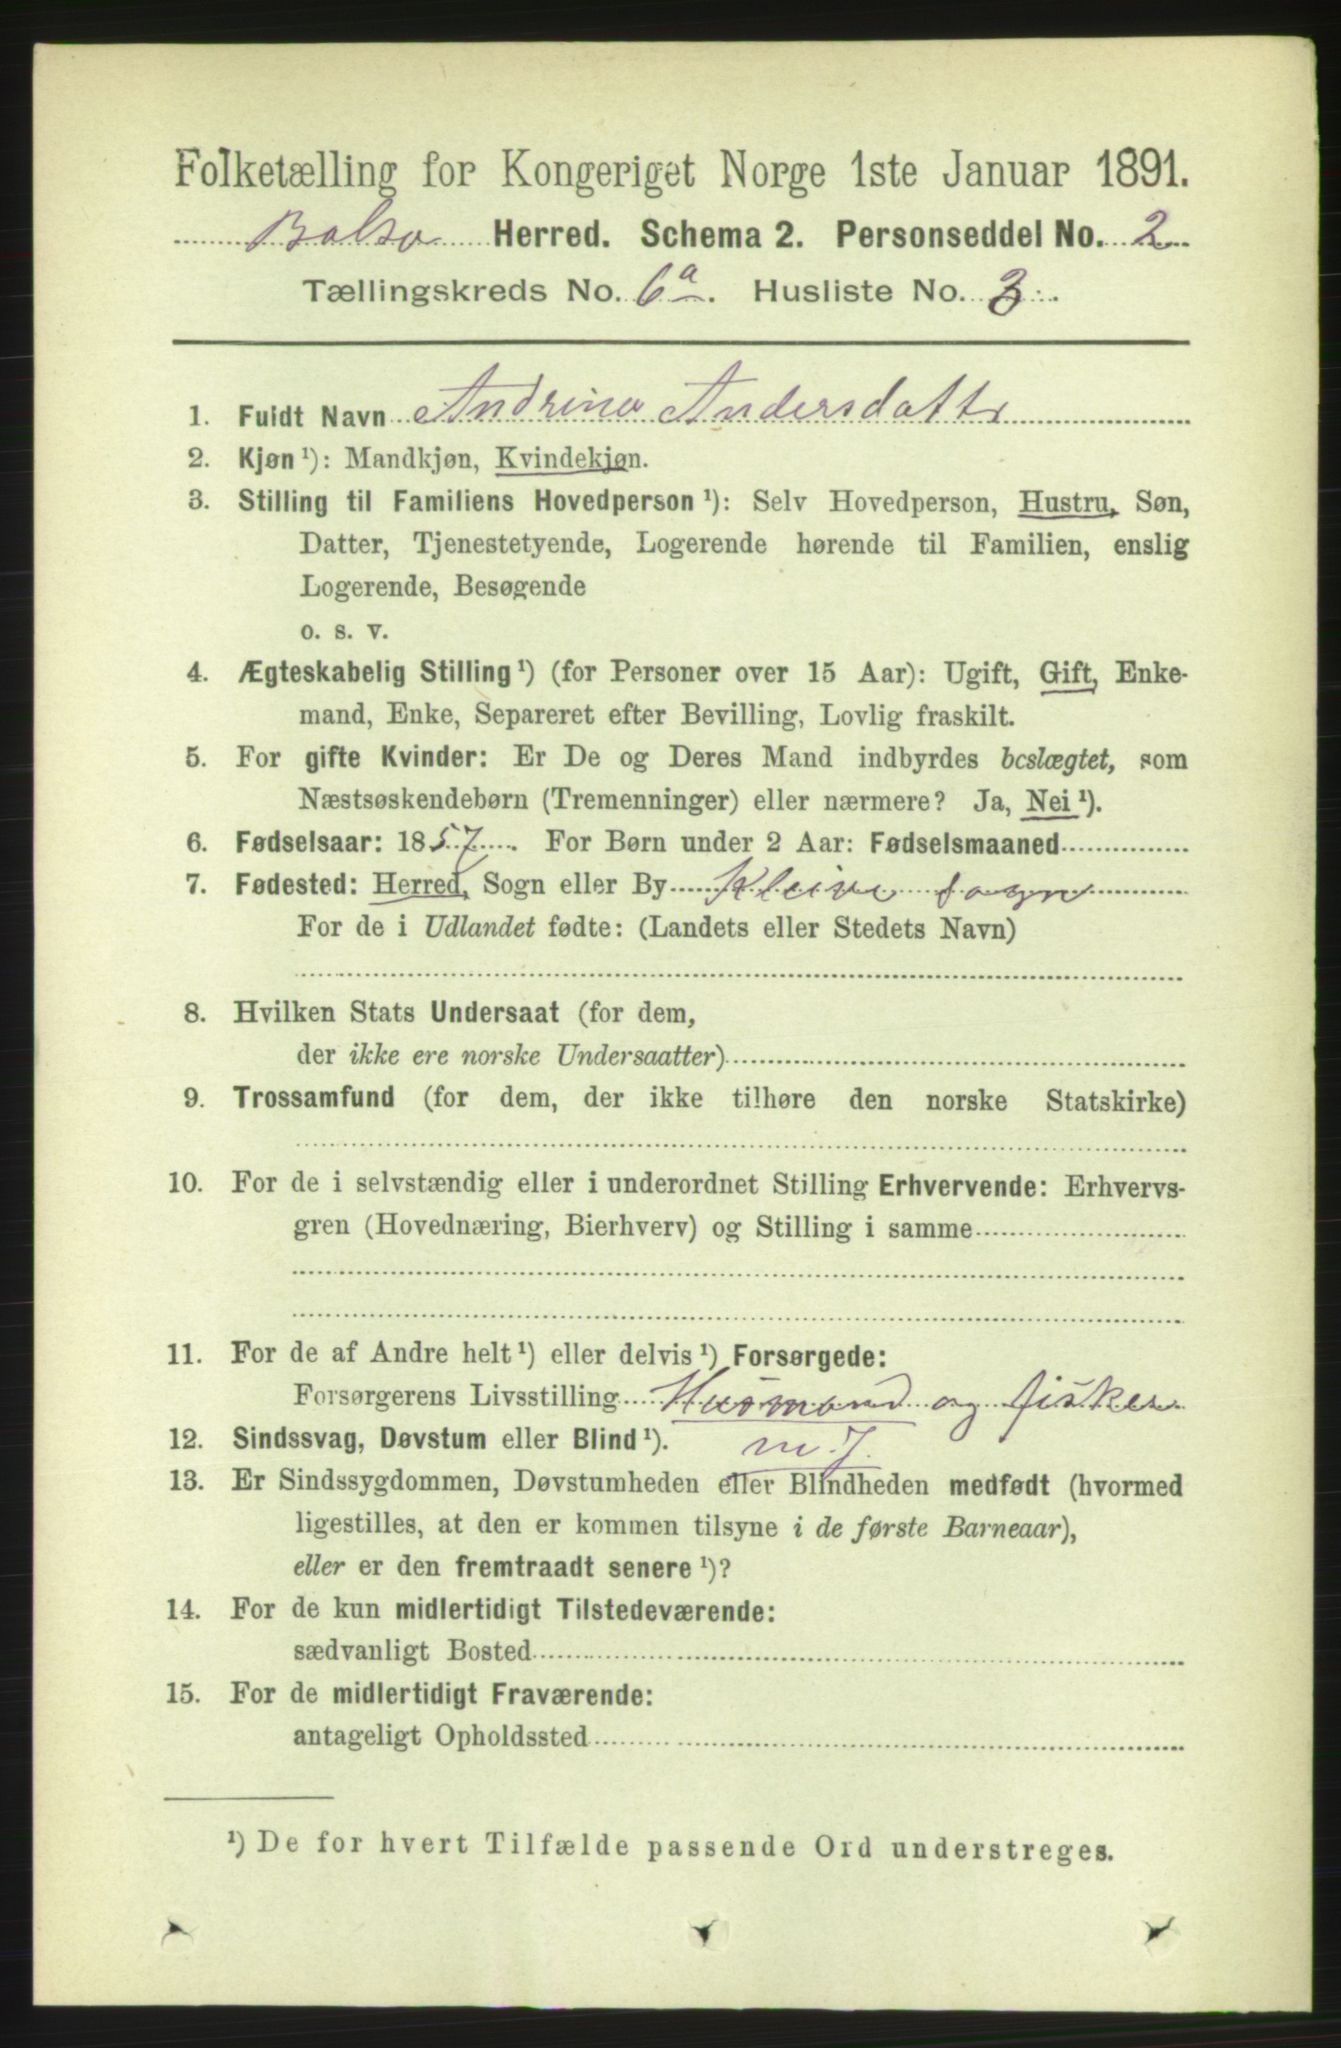 Folketælling for Kongeriget Norge 1ste Januar 1891.
Bolsø Herred. Schema 2. Personseddel No. 2
Tællingskreds No. 6a. Husliste No. 3.
1. Fuldt Navn Andrine Andersdattr
2. Kjøn ¹): Mandkjøn, Kvindekjøn.
3. Stilling til Familiens Hovedperson ¹): Selv Hovedperson, Hustru, Søn,
Datter, Tjenestetyende, Logerende hørende til Familien, enslig
Logerende, Besøgende
o. s. v.
4. Ægteskabelig Stilling ¹) (for Personer over 15 Aar): Ugift, Gift, Enke-
mand, Enke, Separeret efter Bevilling, Lovlig fraskilt.
5. For gifte Kvinder: Er De og Deres Mand indbyrdes beslægtet, som
Næstsøskendebørn (Tremenninger) eller nærmere? Ja, Nei ¹).
6. Fødselsaar: 1857. For Børn under 2 Aar: Fødselsmaaned
7. Fødested: Herred, Sogn eller By Kleive sogn
For de i Udlandet fødte: (Landets eller Stedets Navn)
8. Hvilken Stats Undersaat (for dem,
der ikke ere norske Undersaatter)
9. Trossamfund (for dem, der ikke tilhøre den norske Statskirke)
10. For de i selvstændig eller i underordnet Stilling Erhvervende: Erhvervs-
gren (Hovednæring, Bierhverv) og Stilling i samme
11. For de af Andre helt ¹) eller delvis ¹) Forsørgede:
Forsørgerens Livsstilling Husmand og fisker
12. Sindssvag, Døvstum eller Blind ¹). m. J.
13. Er Sindssygdommen, Døvstumheden eller Blindheden medfødt (hvormed
ligestilles, at den er kommen tilsyne i de første Barneaar),
eller er den fremtraadt senere ¹)?
14. For de kun midlertidigt Tilstedeværende:
sædvanligt Bosted
15. For de midlertidigt Fraværende:
antageligt Opholdssted
¹) De for hvert Tilfælde passende Ord understreges.